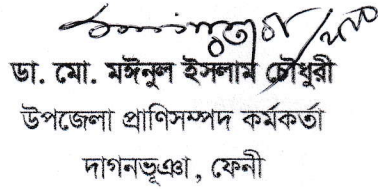 ডা. মো. মঈনুল ইসলাম চৌধুরী
উপজেলা প্রাণিসম্পদ কর্মকর্তা
দাগনভূঞা, ফেনী